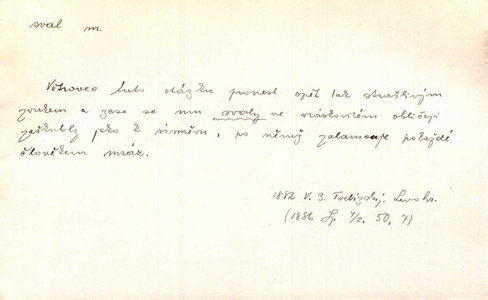 sval m.
Vršovec tuto otázku pronesl opět tak strašlivým
zvukem a zase se mu svaly ve vráskovitém obličeji
zaškubly jako k úsměvu, po němž zalomcuje pokaždé
člověkem mráz.
1882 V. B. Třebízský. Levohr.
(1886 Sp. 7/2. 50, 7)